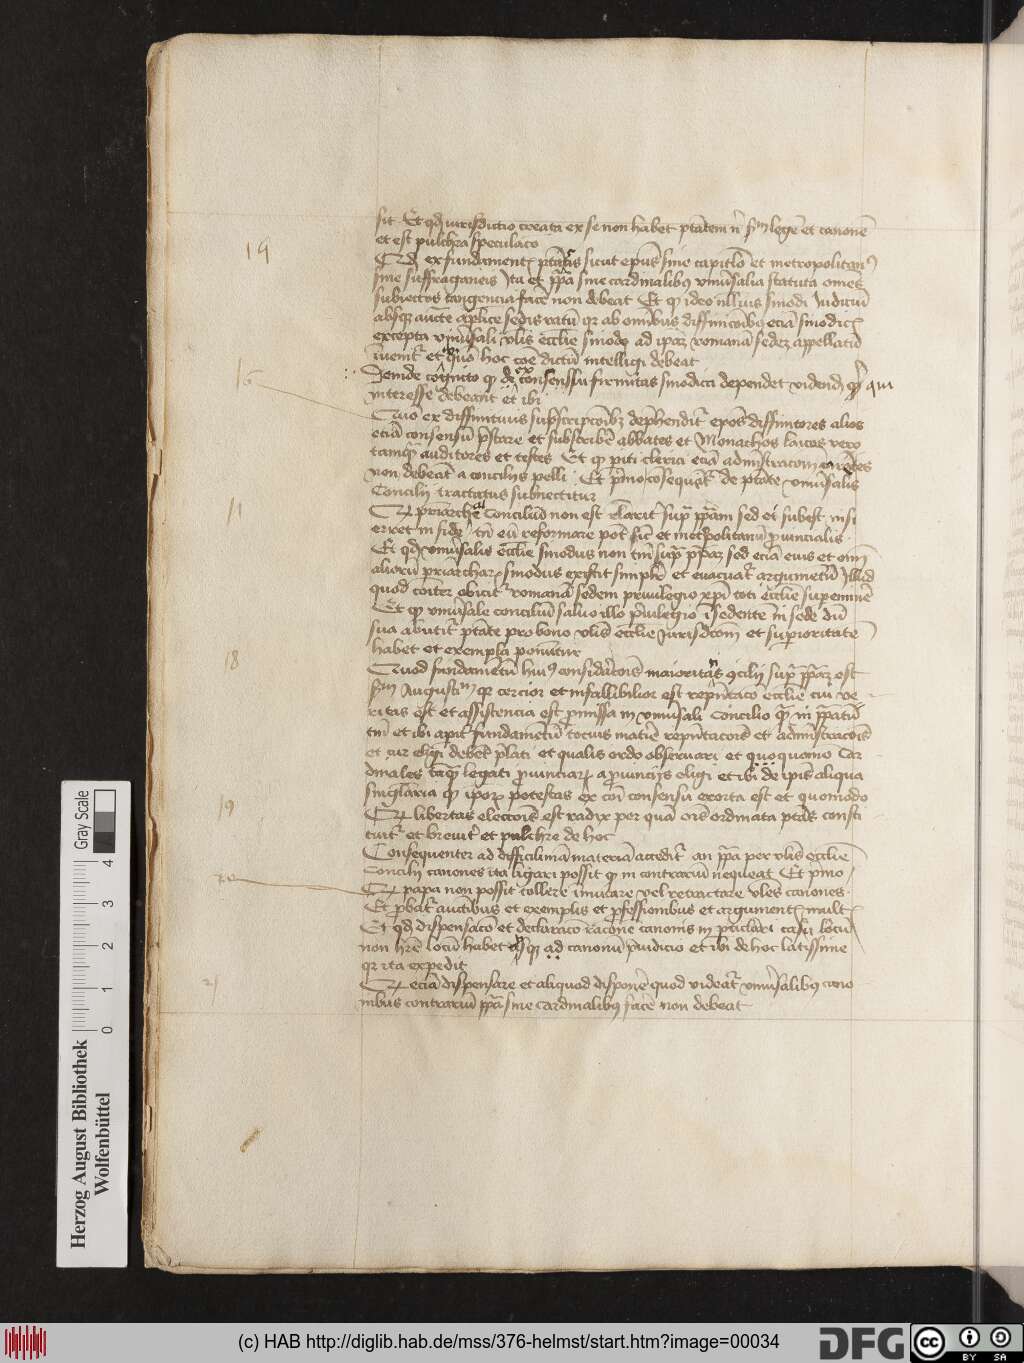 sit Et qd iurisdictio creata ex se non habet ptatem nˢ scᵐ legē et canonē
et est pulchra speculaco
19
Qd ex fundament ptatis sicut epūs sine capitlo et metropolitanꝰ
sine suffraganeis Ita et papa sine cardinalibꝰ vniūsalia statuta omēs
subiectos tangencia facē non debeat Et ꝙ ideo nllius sinodi Iudiciū
absqꝫ aucte aplice sedis ratū qr ab omibus diffinicoībꝰ eciā sinodic
excepta vniūsali vlis ecclie sinodo ad ipaꝫ romanā sedeꝫ appellatio
inenit et quō hoc coē dictū intelligi debeat
16
Deinde cognito ꝙ de ex consensu firmitas sinodici dependet vidend qui
interesse debeant et ibi
Quo ex diffinituis subscripcoībꝫ dephendit epos diffinitores alios
eciā consensū pstare et subscribē abbates et Monachos laicos vero
tamqꝫ auditores et testes Et ꝙ piti clerici eciā admistracom carētes
non debeāt a concilijs pelli Et pmo conseqūt de ptate vniūsalis
Concilii tractatus subnectitur
17
Qd priarche Conciliū non est clarit sup papam sed ei subest nisi
erret in fide tn eū reformare pot sic et metpolitanū prouincialis
Et qd vniūsalis ecclie sinodus non tm sup papaꝫ sed eciā eius et oim
aliorū priarchar sinodus existit simplr et euacuat argumetū Illud
quod coiter obicit romanā sedem priuilegio xpi toti ecclie supeminē
Et ꝙ vniūsale conciliū saluo illo priuilegio in sedente in sede dū
sua abutit ptate pro bono vlis ecclie Iurisdcom et supioritatē
habet et exempla ponuntur
18
Quod fundametū huiꝰ consideracōis maioritatis gcilij sup papaꝫ est
scᵐ Augustiᵐ qr cercior et infallibilior est repntaco ecclie cui ve
ritas est et assistencia est pmissa in vniuūsali Concilio qꝫ in papatu
tm et ibi apit fundametū tocius matiē repntacōis et admistracōis
et cur eligi debet plati et qualis ordo obseruari et quoquomo Car
dinales tāqꝫ legati prouinciar a prouincijs eligi et ibi de ipis aliqua
singlaria ꝙ ipor potestas ex coi consensu exorta est et quomodo
19
Qd libertas eleccois est radix per quā ois ordinata ptās consti
tuit et breuit et pulchre de hoc
Consequenter ad difficilimā materiā accedit an papa per vlis ecclie
Concilij canones ita ligari possit ꝙ in contrariū nequeat Et pmo
20
Qd papa non possit tollere imutare vel retractare vles canones
Et pbat auctibus et exemplis et pfessionibus et argument mult
Et qd dispensaco et declaraco racone canonis in ptículari casu locū
non hre locū habet ꝙ ad canonū piudicio et ibi de hoc latissime
qr ita expedit
21
Qd eciā dispensare et aliquod disponē quod videat vniūsalibꝰ cano
nibus contrariū papa sine cardinalibꝰ facē non debeat
Gray Scale
4
3
2
1
0
Herzog August Bibliothek
Wolfenbüttel
(c) HAB http://diglib.hab.de/mss/376-helmst/start.htm?image=00034
DFG
cc
BY SA